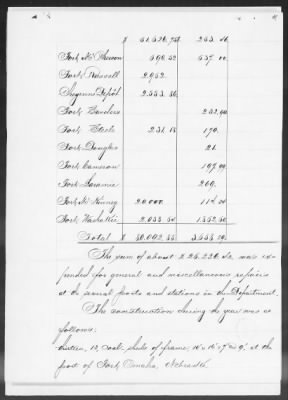 $ 51,526.75 253.56
Fort McPherson 698.52 537.00
Fort Russell 2,952.
Cheyenne Depôt 2,553.56
Fort Sanders 232.90
Fort Steele 231.15 170.
Fort Douglas 21.
Fort Cameron 197.00
Fort Laramie 269.
Fort McKinney 20.000. 114.50
Fort Washakie 2,038.50
Total $ 80.002.
The sum of about $ 226,226. was ex-
pended for general and miscellaneous repairs
at the several posts and stations in the Department.
The construction during the year was as
follows:
thirteen, 13, coal sheds of frame, 16' x 16' x 7' and 9', at the
post of Fort Omaha, Nebraska.